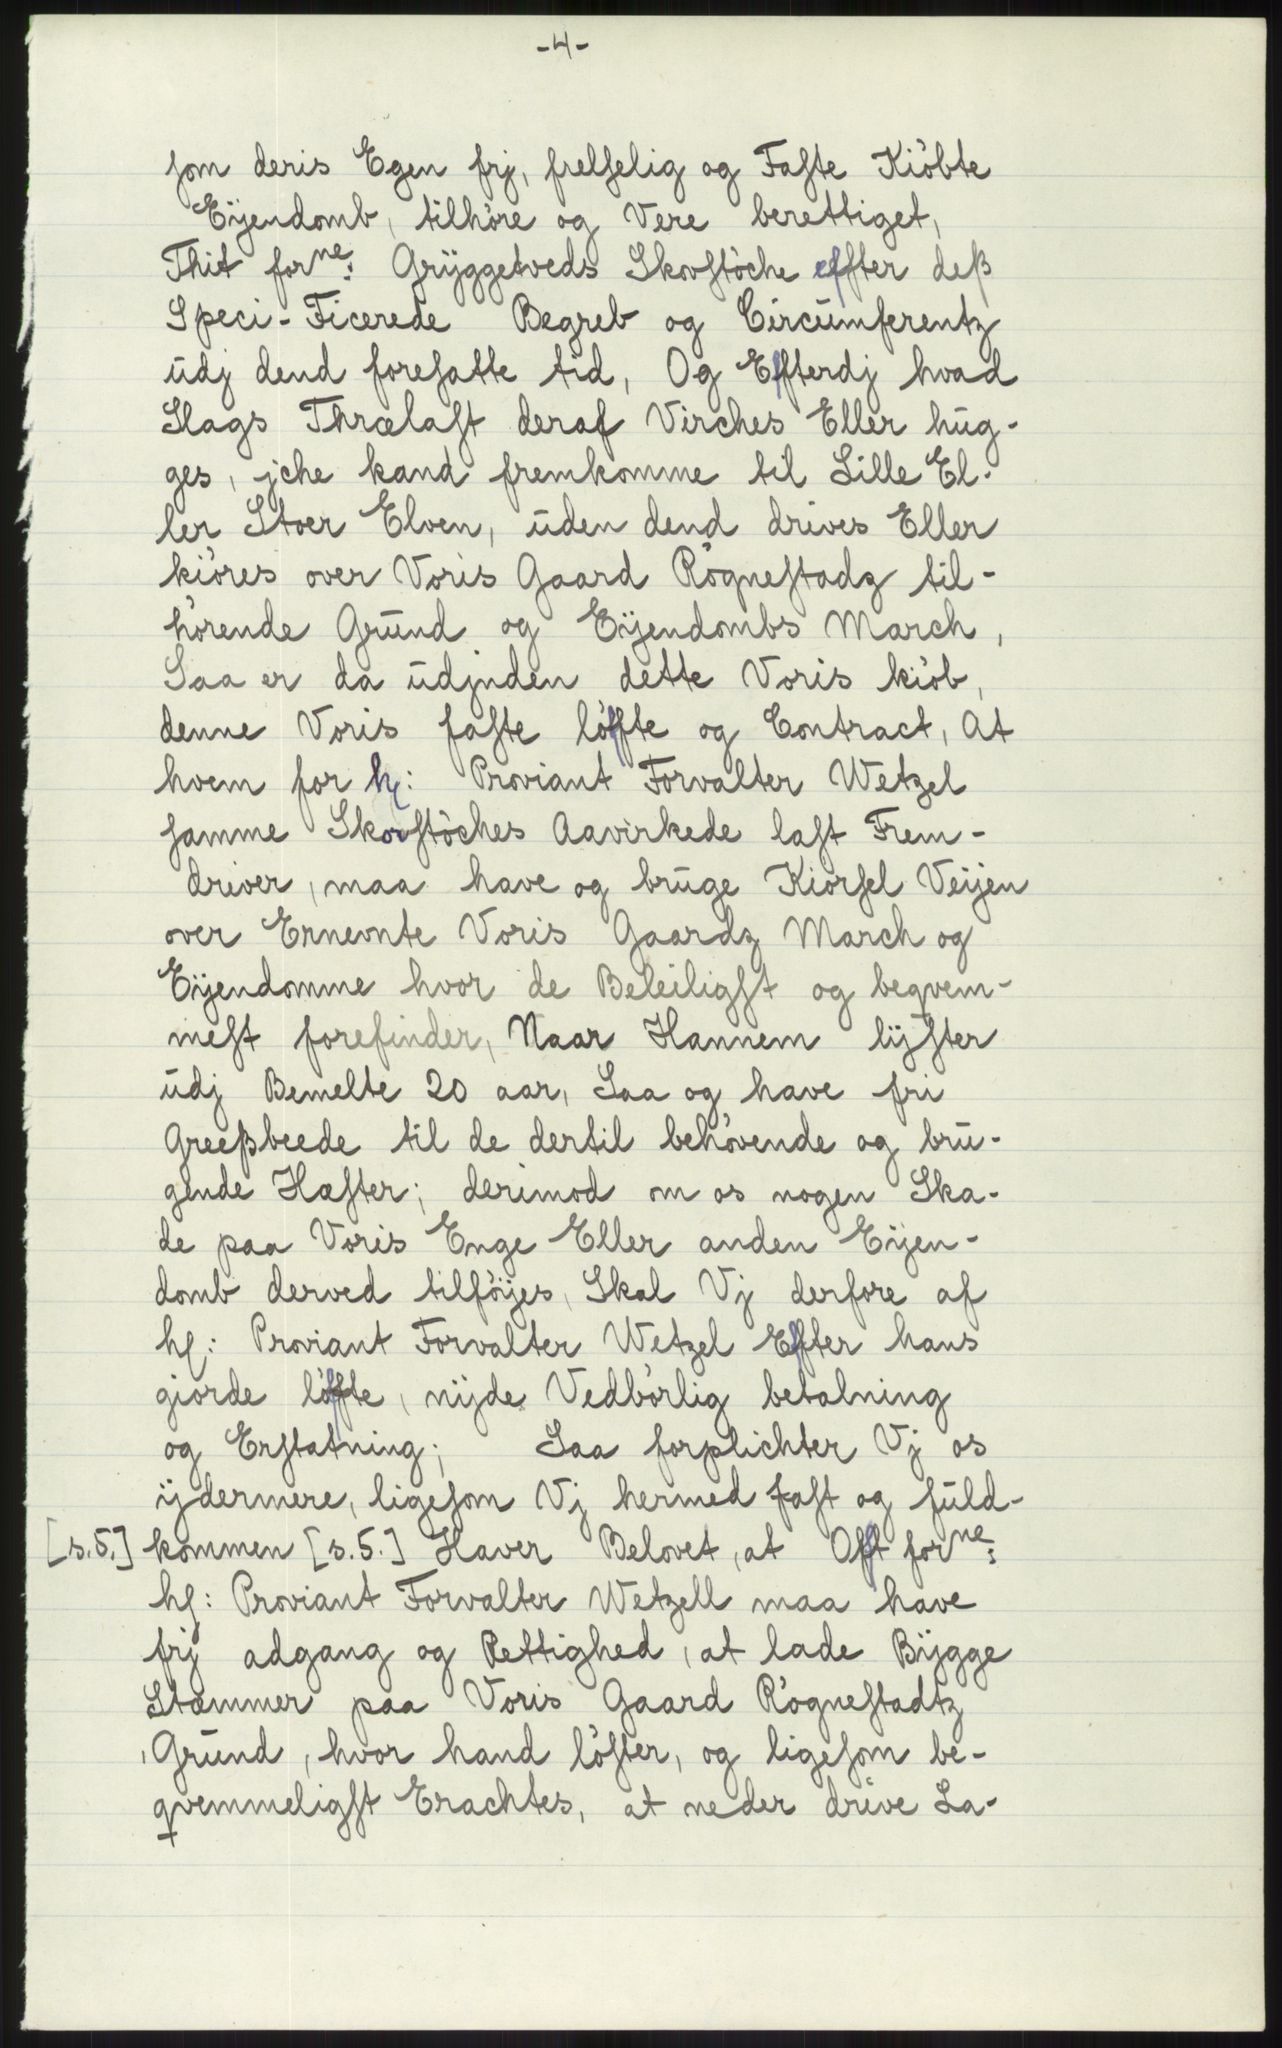 -4-
som deris Egen frj, frelselig og Faste Kiöbte
Eÿendomb, tilhöre og Vere berettiget,
Thit forne: Grÿggetveds Skovstöche effter deß
Speci-Ficerede Begreb og Circumferentz
udj dend foresatte tid, Og Effterdj hvad
Slags Thrælast deraf Virches Eller hug-
ges, jche kand fremkomme til Lille El-
ler Stoer Elven, uden dend drives Eller
kiöres over Voris Gaard Rögnestadz til-
hörende Grund og Eÿendombs March,
Saa er da udjnden dette Voris kiöb,
denne Voris faste löffte og Contract, At
hvem for hℓ: Proviant Forvalter Wetzel
samme Skovstöches Aavirkede last Frem-
driver, maa have og bruge Kiorsel Veÿen
over Ernevnte Voris Gaardz March og
Eÿendomme hvor de Beleiligst og beqvem-
mest forefinder, Naar Hannem lÿster
udj Bemelte 20 aar, Saa og have fri
Greeßbeede til de dertil behövende og bru-
gende Hæster; derimod om os nogen Ska-
de paa Voris Enge Eller anden Eÿen-
domb derved tilföÿes, Skal Vj derfore af
hℓ: Proviant Forvalter Wetzel Effter hans
giorde löffte, nÿde Vedbörlig betalning
og Erstatning; Saa forplichter Vj os
ÿdermere, ligesom Vj hermed fast og fuld-
[s.5.] kommen [s.5.] Haver Belovet, at Offt forne:
hℓ: Proviant Forvalter Wetzell maa have
frj adgang og Rettighed, at lade Bÿgge
Stæmmer paa Voris Gaard Rögnestadtz
Grund, hvor hand löster, og ligesom be-
qvemmeligst Erachtes, at neder drive La-